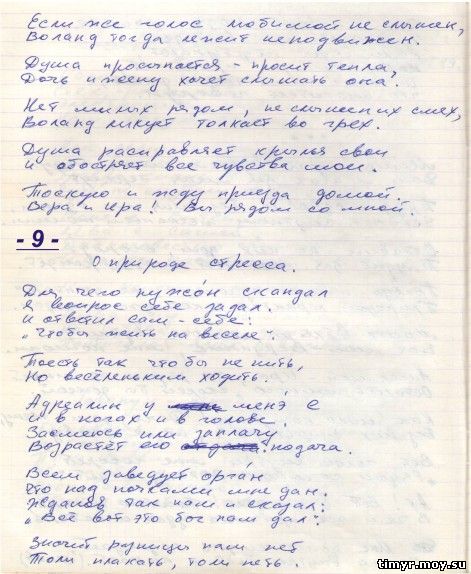 Если же голос любимой не слышен,
Воланд тогда лежит неподвижен.
Душа просыпается - просит тепла
Дочь и жену хочет слышать она?
Нет милых рядом, не слышен их смех,
Воланд ликует толкает во грех.
Душа расправляет крылья свои
и обостряет все чувства мои.
Тоскую и жду приезда домой.
Вера и Ира! Вы рядом со мной.
- 9 -
О природе стресса.
Для чего нужон скандал
Я вопрос себе задал.
И ответил сам - себе:
"Чтобы жить на веселе".
Тоесть так что бы не пить,
Но весёленьким ходить.
Адреалин у менэ е
и в ногах и в голове.
Засмеюсь или заплачу
Возрастёт его подача.
Всем заведует орган
Что над почками мне дан.
Жданов так нам и сказал:
"Всё вот это бог нам дал".
Значит разницы нам нет
Толи плакать, толи петь.
timyr.moy.su